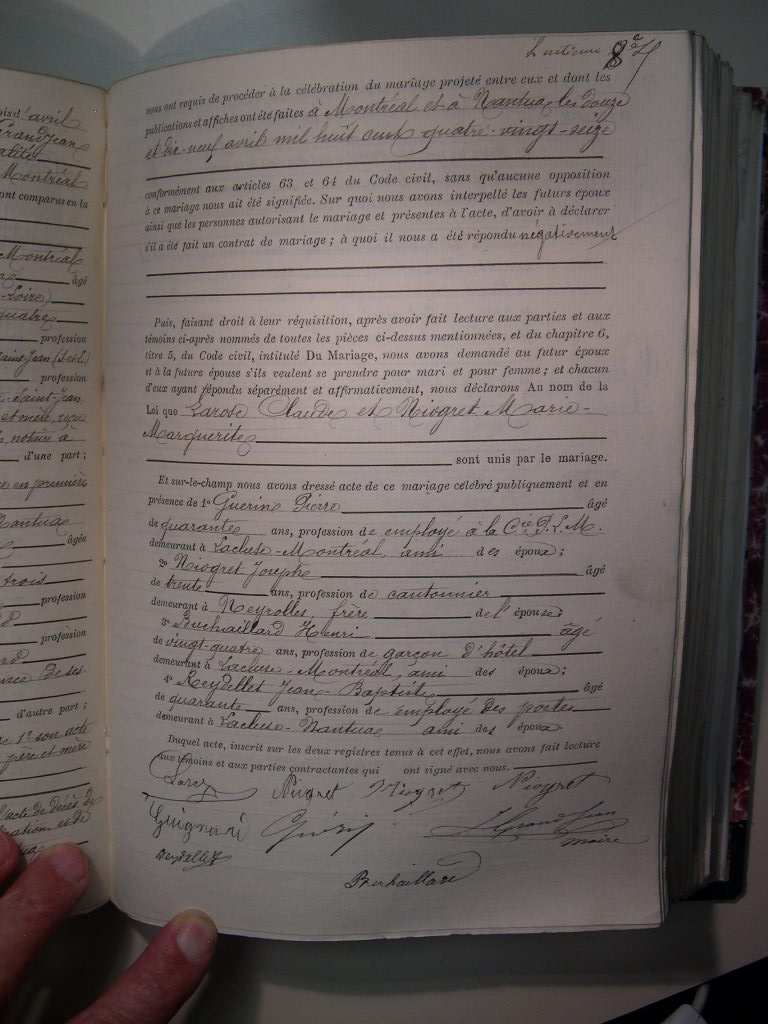 ois d'avril
Grandjean
Montréal
ont comparus en la
Montréal
âgé
Loire)
quatre
profession
Saint-Jean
profession
Saint-Jean
et mère
notice à
d'une part;
en première
Nantua
âgée
trois
profession
profession
de ses
d'autre part;
1° son acte
père et mère
l'acte de décès de
et de
8
nous ont requis de procéder à la célébration du mariage projeté entre eux et dont les
publications et affiches ont été faites à Montréal et à Nantua les douze
et dix-neuf avril mil huit cent quatre-vingt-seize
conformément aux articles 63 et 64 du Code civil, sans qu'aucune opposition
à ce mariage nous ait été signifiée. Sur quoi nous avons interpellé les futurs époux
ainsi que les personnes autorisant le mariage et présentes à l'acte, d'avoir à déclarer
s'il a été fait un contrat de mariage; à quoi il nous a été répondu négativement
Puis, faisant droit à leur réquisition, après avoir fait lecture aux parties et aux
témoins ci-après nommés de toutes les pièces ci-dessus mentionnées, et du chapitre 6,
titre 5, du Code civil, intitulé Du Mariage, nous avons demandé au futur époux
et à la future épouse s'ils veulent se prendre pour mari et pour femme; et chacun
d'eux ayant répondu séparément et affirmativement, nous déclarons Au nom de la
Loi que Larose Claude et Niogret Marie-
Marguerite
sont unis par le mariage.
Et sur-le-champ nous avons dressé acte de ce mariage célébré publiquement et en
présence de 1° Guerin Pierre âgé
de quarante ans, profession de employé à la Cie P. L. M.
demeurant à Lacluse-Montréal, ami des époux;
2° Niogret Joseph âgé
de trente ans, profession de cantonnier
demeurant à Neyrolles, frère de l'épouse
3° Buchaillard Henri âgé
de vingt-quatre ans, profession de garçon d'hôtel
demeurant à Lacluse-Montréal, ami des époux;
4° Reydellet Jean-Baptiste âgé
de quarante ans, profession de employé des postes
demeurant à Lacluse-Nantua ami des époux
Duquel acte, inscrit sur les deux registres tenus à cet effet, nous avons fait lecture
aux témoins et aux parties contractantes qui ont signé avec nous.
Niogret Niogret Niogret
Guignard Guérin Grandjean
maire
Reydellet